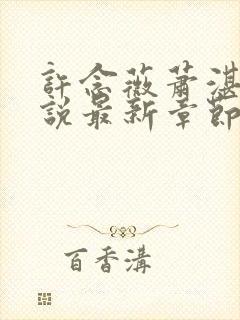 許念薇蕭湛
說最新章節
百香溝